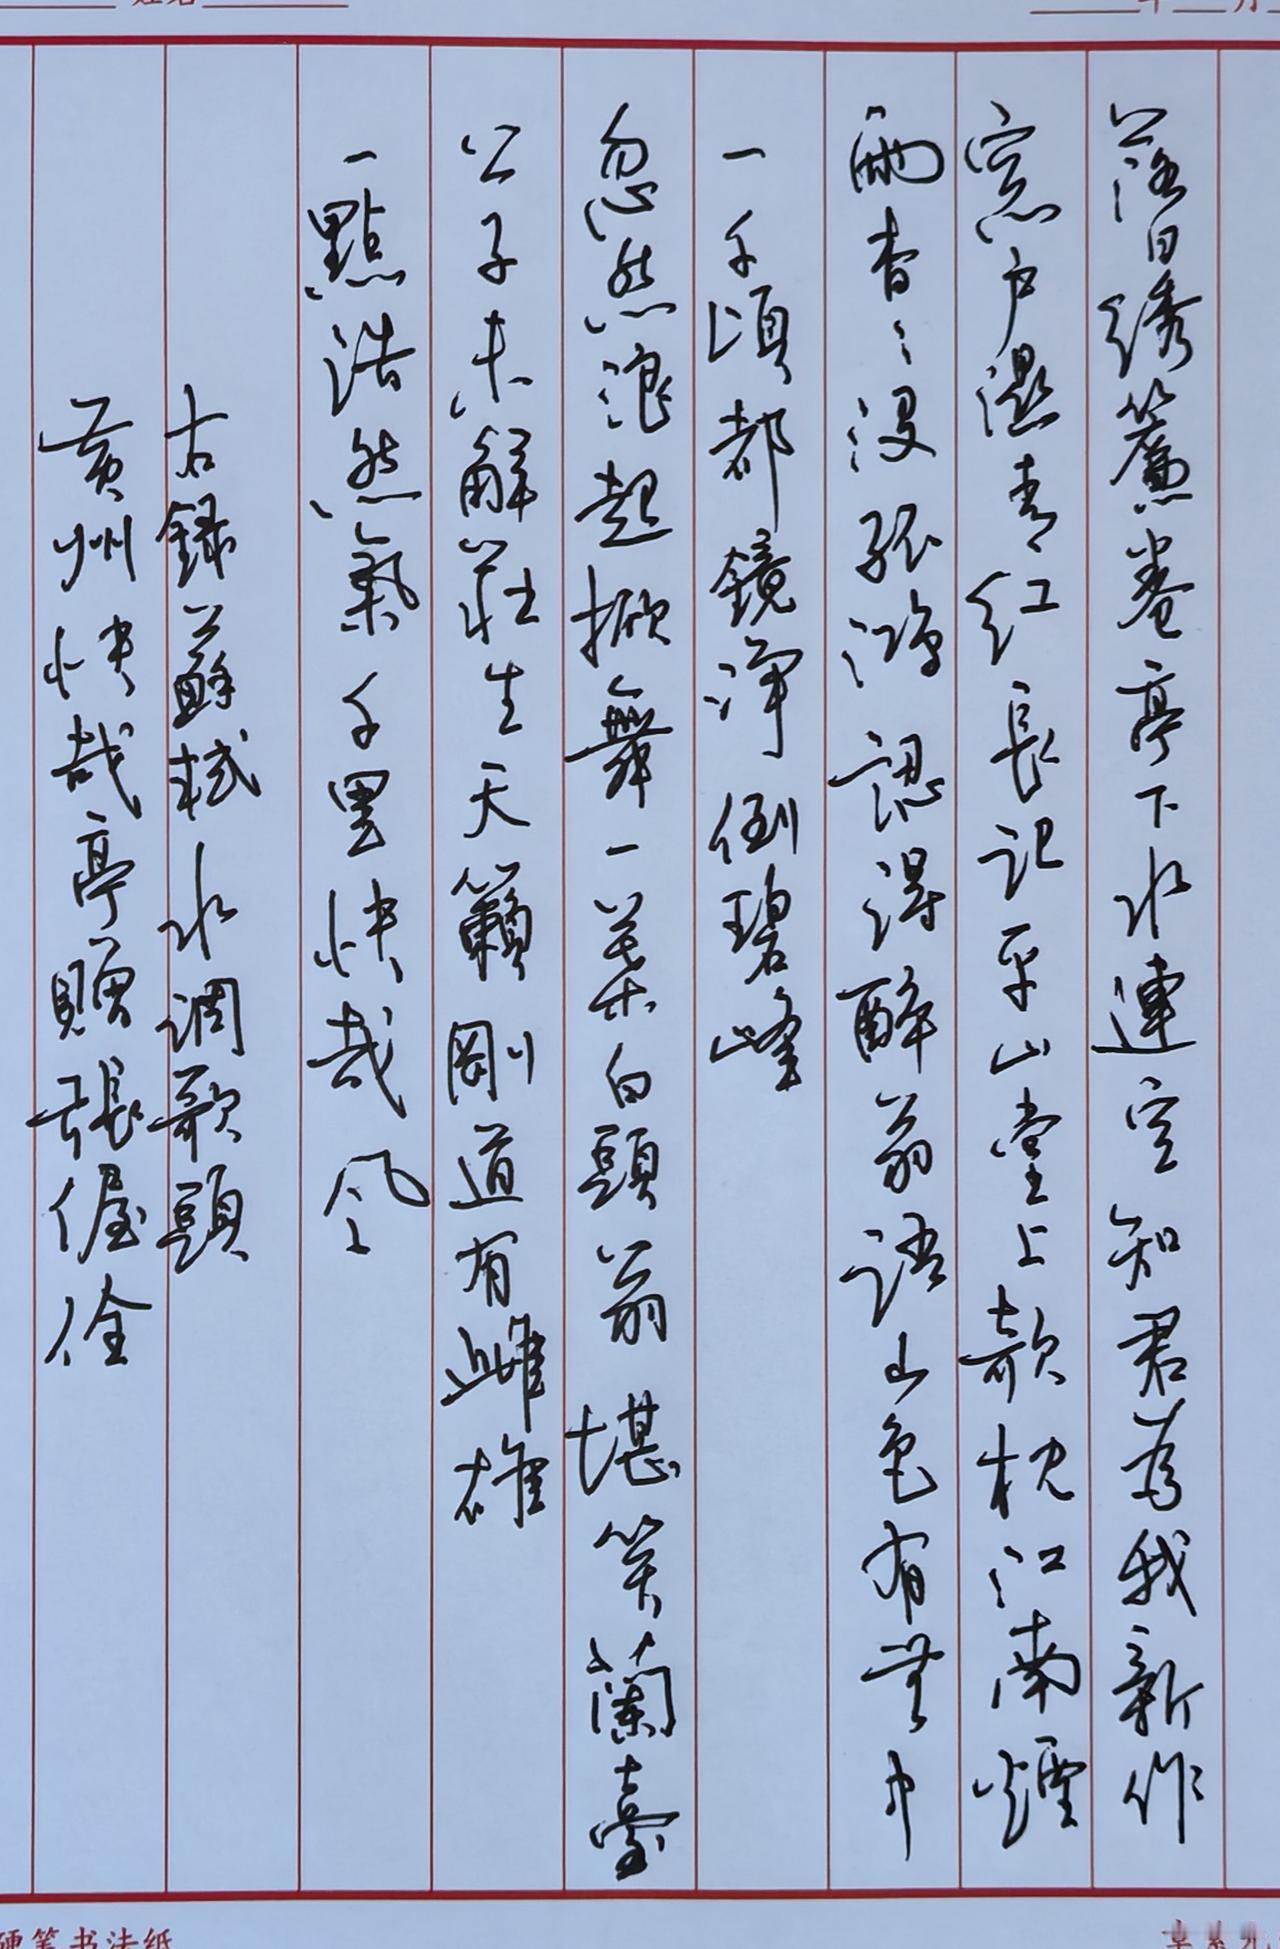 落日绣簾卷亭下水連空知君為我新作
窓户濕青紅長記平山堂上欹枕江南煙
雨杳〻没孤鴻認得醉翁語山色有無中
一千頃都鏡淨倒碧峰
忽然浪起掀舞一葉白頭翁堪笑蘭臺
公子未解莊生天籟剛道有雌雄
一點浩然氣千里快哉風
右録蘇軾水調歌頭
黄州快哉亭贈張偓佺
硬笔书法纸